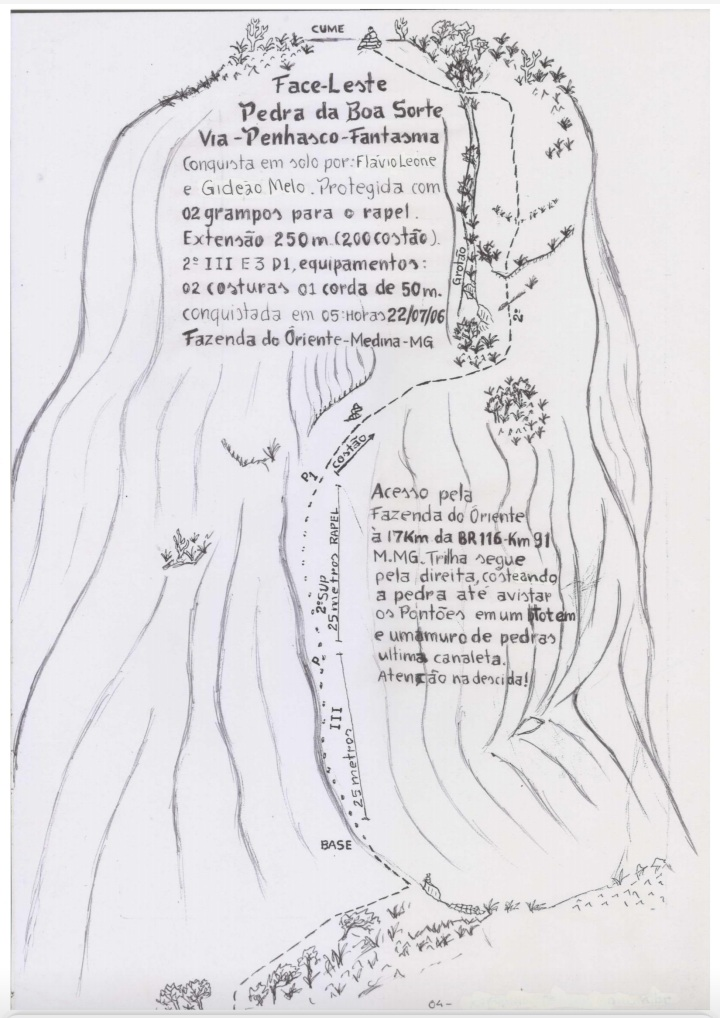 CUME
Face-Leste
Pedra da Boa Sorte
Via-Penhasco-Fantasma
Conquista em solo por: Flávio Leone
e Gideão Melo. Protegida com
02 grampos para o rapel.
Extensão 250m.(200 costão).
2º III E3 D1, equipamentos:
02 costuras 01 corda de 50m.
conquistada em 05:Horas 22/07/06
Fazenda do Oriente-Medina-MG
Grotão
2º
Costão
P1
Acesso pela
Fazenda do Oriente
à 17Km da BR116-Km 91
M.MG. Trilha segue
pela direita, costeando
a pedra até avistar
os Pontões em um Totem
e umamuro de pedras
ultima canaleta.
Atenção na descida!
2ºSUP
25 metros RAPEL
P
III
25 metros
BASE
04-